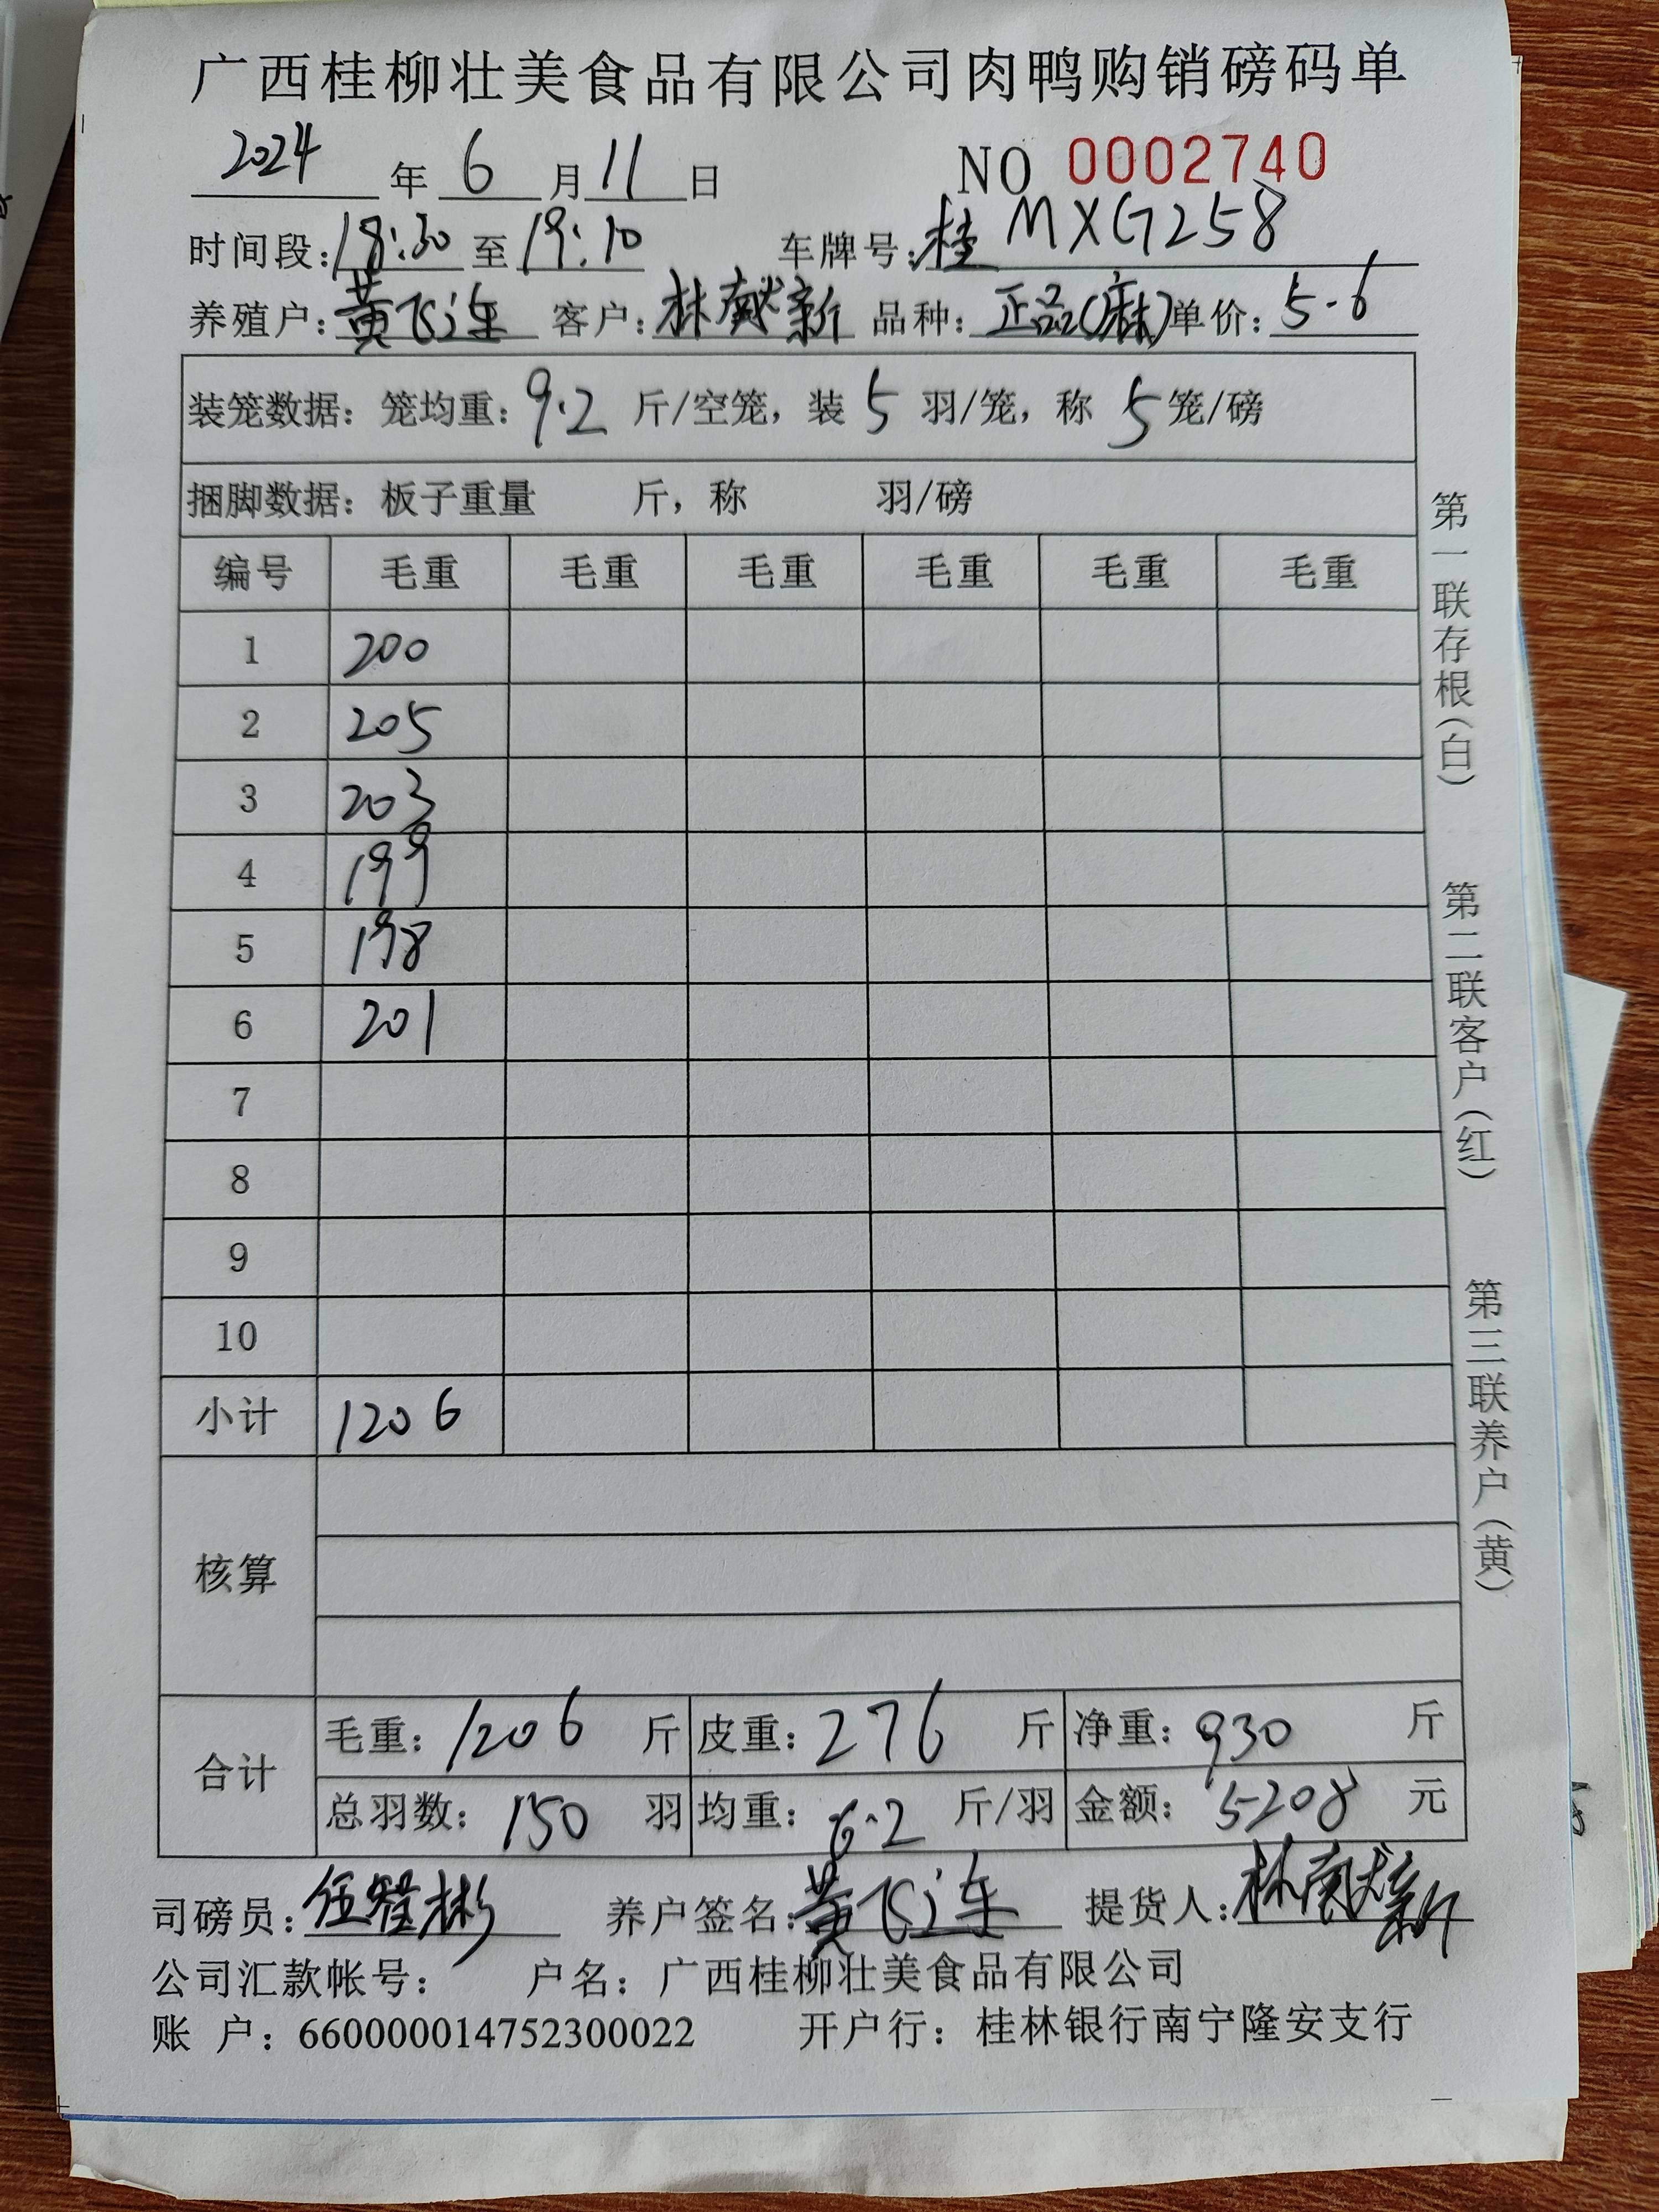 广西桂柳壮美食品有限公司肉鸭购销磅码单
2024 年 6 月 11 日 NO 0002740
时间段:18:30 至 19:10 车牌号:桂 MXG258
养殖户:黄飞连 客户:林献新 品种:正品(麻) 单价:5.6
装笼数据:笼均重:9.2 斤/空笼,装 5 羽/笼,称 5 笼/磅
捆脚数据:板子重量 斤,称 羽/磅
编号 毛重 毛重 毛重 毛重 毛重 毛重
1 200
2 205
3 203
4 199
5 198
6 201
7
8
9
10
小计 1206
核算
合计 毛重:1206 斤 皮重:276 斤 净重:930 斤
总羽数:150 羽 均重:6.2 斤/羽 金额:5208 元
司磅员:伍 彬 养户签名:黄飞连 提货人:林献新
公司汇款帐号: 户名:广西桂柳壮美食品有限公司
账 户:660000014752300022 开户行:桂林银行南宁隆安支行
第一联存根(白)
第二联客户(红)
第三联养户(黄)